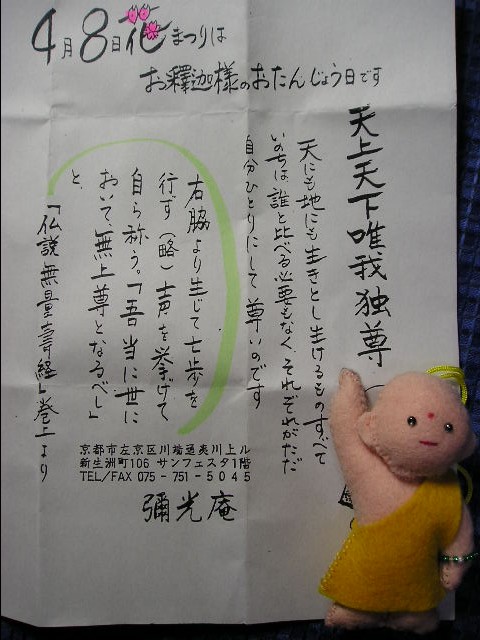 4月8日花まつりは
お釋迦様のおたんじょう日です
天上天下唯我独尊
天にも地にも生きとし生けるものすべて
いのちは、誰と比べる必要もなく、それぞれがただ
自分ひとりにして尊いのです
右脇より生じて七歩を
行ず(略)声を挙げて
自ら称う。「吾当に世に
おいて無上尊となるべし」
と、
「仏説無量壽経」巻上より
京都市左京区川端通夷川上ル
新生洲町106 サンフェスタ1階
TEL/FAX 075-751-5045
彌光庵